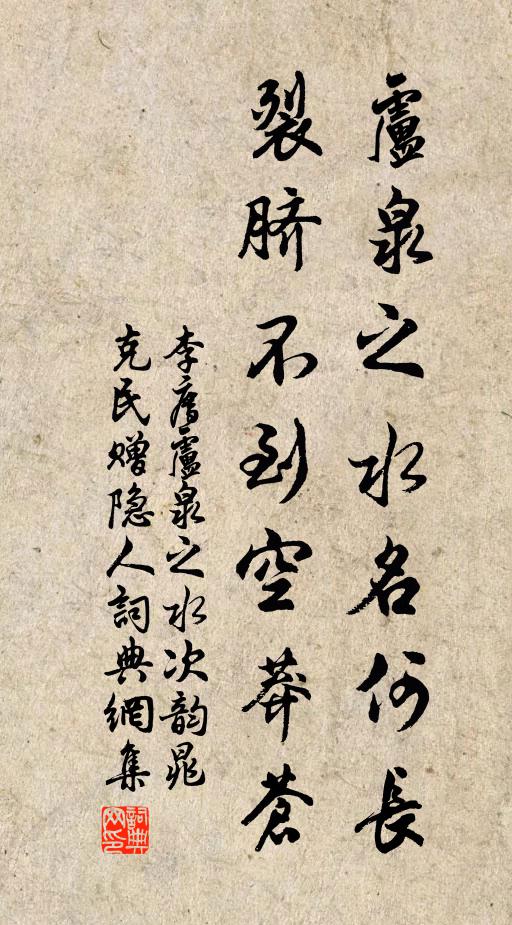 廬泉之水名何長
裂脐不到空莽蒼
李廌廬泉之水次韵晁
克民赠隐人詞典網集
詞典网印